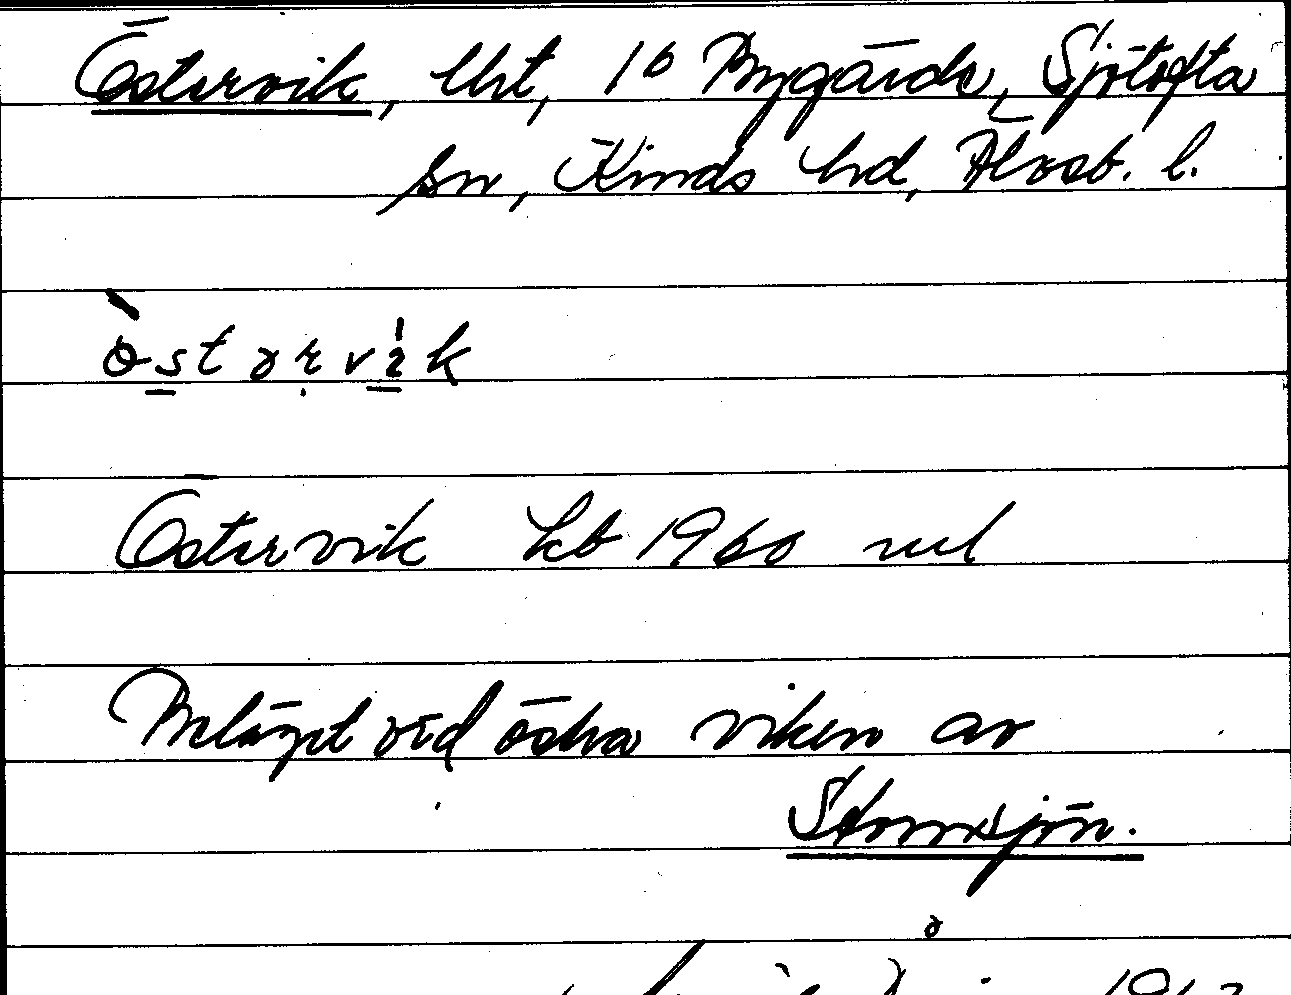 Östervik, lht, 1⁶ Bygärde, Sjötofta
sn, Kinds hd, Älvsb. l.
östərvik
Östervik kb 1960
Beläget vid östra viken av
Stomsjön.